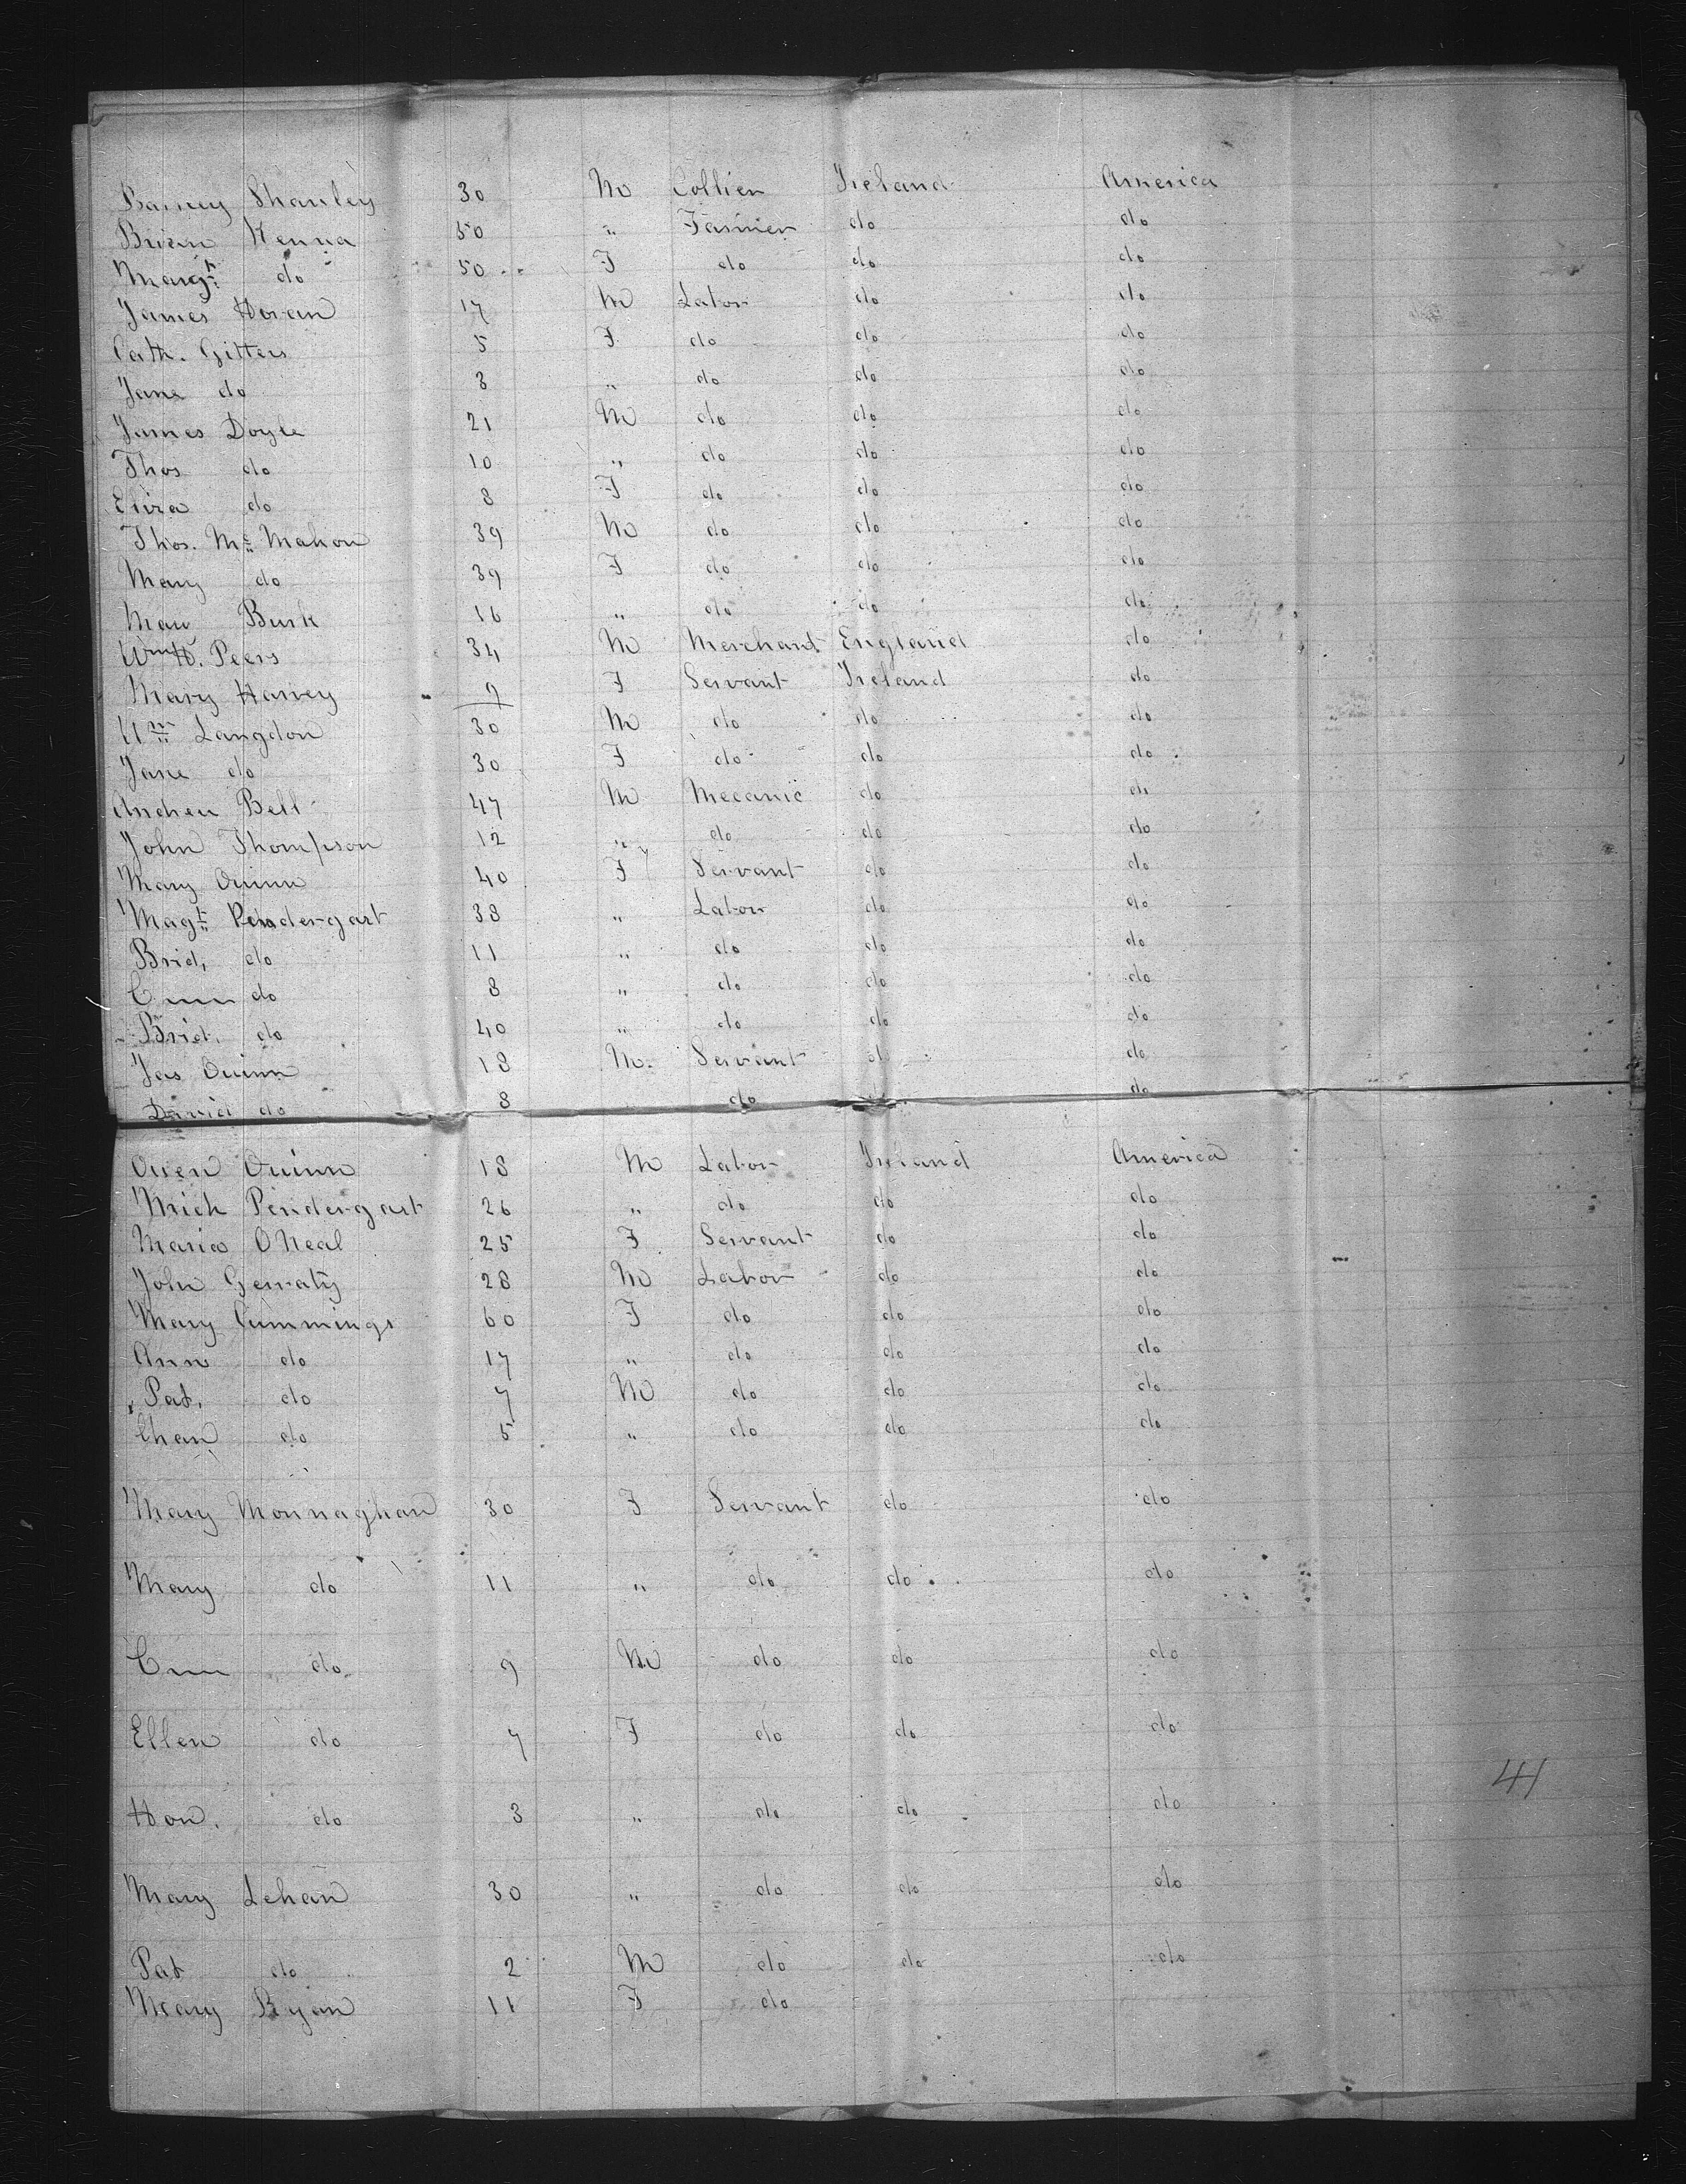 Barney Shanley 30 M Collier Ireland America
Brian Kenna 50 " Farmer do do
Margt do 50 F do do do
James Horan 17 M Labor do do
Cath. Gitters 5 F do do do
Jane do 3 " do do do
James Doyle 21 M do do do
Thos do 10 " do do do
Eliza do 8 F do do do
Thos. Mc Mahon 39 M do do do
Mary do 39 F do do do
Mau Burk 16 " do do do
Wm H. Peers 34 M Merchant England do
Mary Harvey 9 F Servant Ireland do
Wm Langdon 30 M do do do
Jane do 30 F do do do
Andrew Bell 47 M Mecanic do do
John Thompson 12 " do do do
Mary Quinn 40 F Servant do do
Magt Pendergart 38 " Labor do do
Brid, do 11 " do do do
do 8 " do do do
Brid. do 40 " do do do
Jas Quinn 18 M. Servant do do
David do 8 do do
Owen Quinn 18 M Labor Ireland America
Mich Pendergart 26 " do do do
Maria ONeal 25 F Servant do do
John Gerraty 28 M Labor do do
Mary Cummings 60 F do do do
Ann do 17 " do do do
Pat. do 7 M do do do
Chan do 5 " do do do
Mary Monnaghan 30 F Servant do do
Mary do 11 " do do do
do 9 M do do do
Ellen do 7 F do do do
41
Hon. do 3 " do do do
Mary Lehan 30 " do do do
Pat do 2 M do do do
Mary Ryan 11 F do